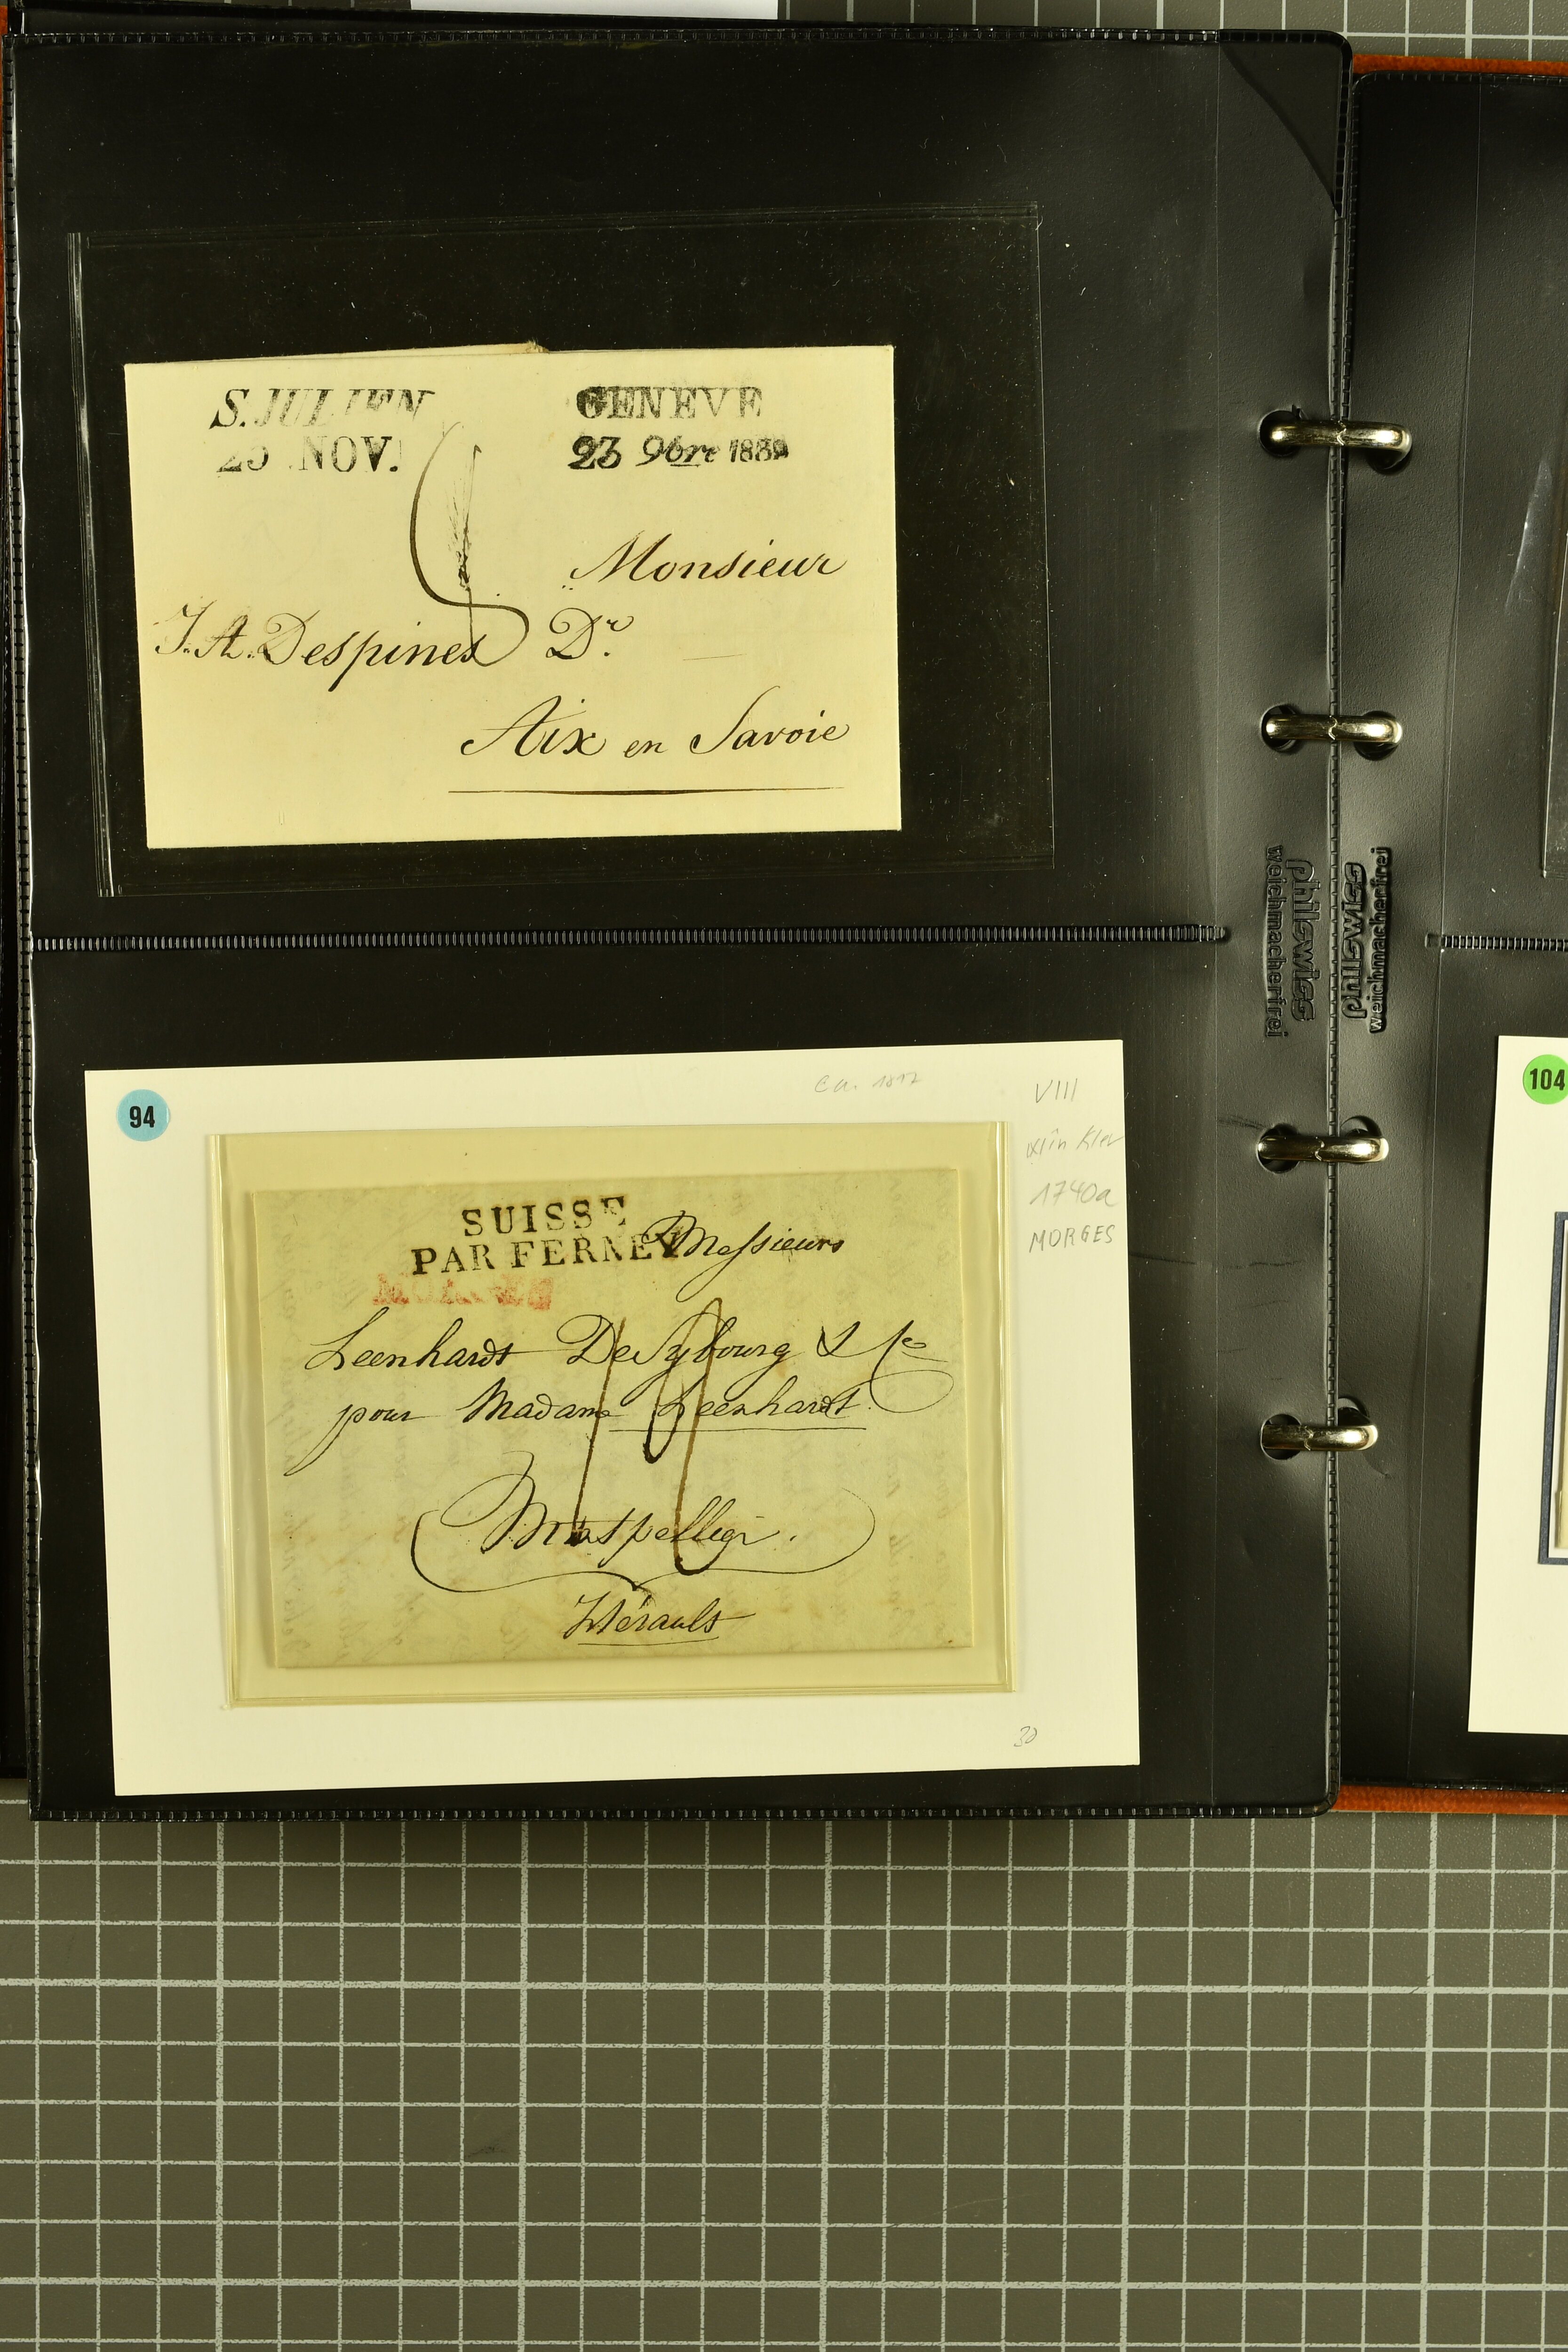 S. JULIEN
23 NOV.
GENEVE
23 9bre
Monsieur
J. A. Despines Dr.
Aix en Savoie
philswiss
weichmacherfrei
philswiss
weichmacherfrei
94
VIII
1740a
MORGES
SUISSE
PAR FERNEY
Messieurs
Leenhardt
pour Madame Leenhardt
Montpellier.
Hérault
30
104